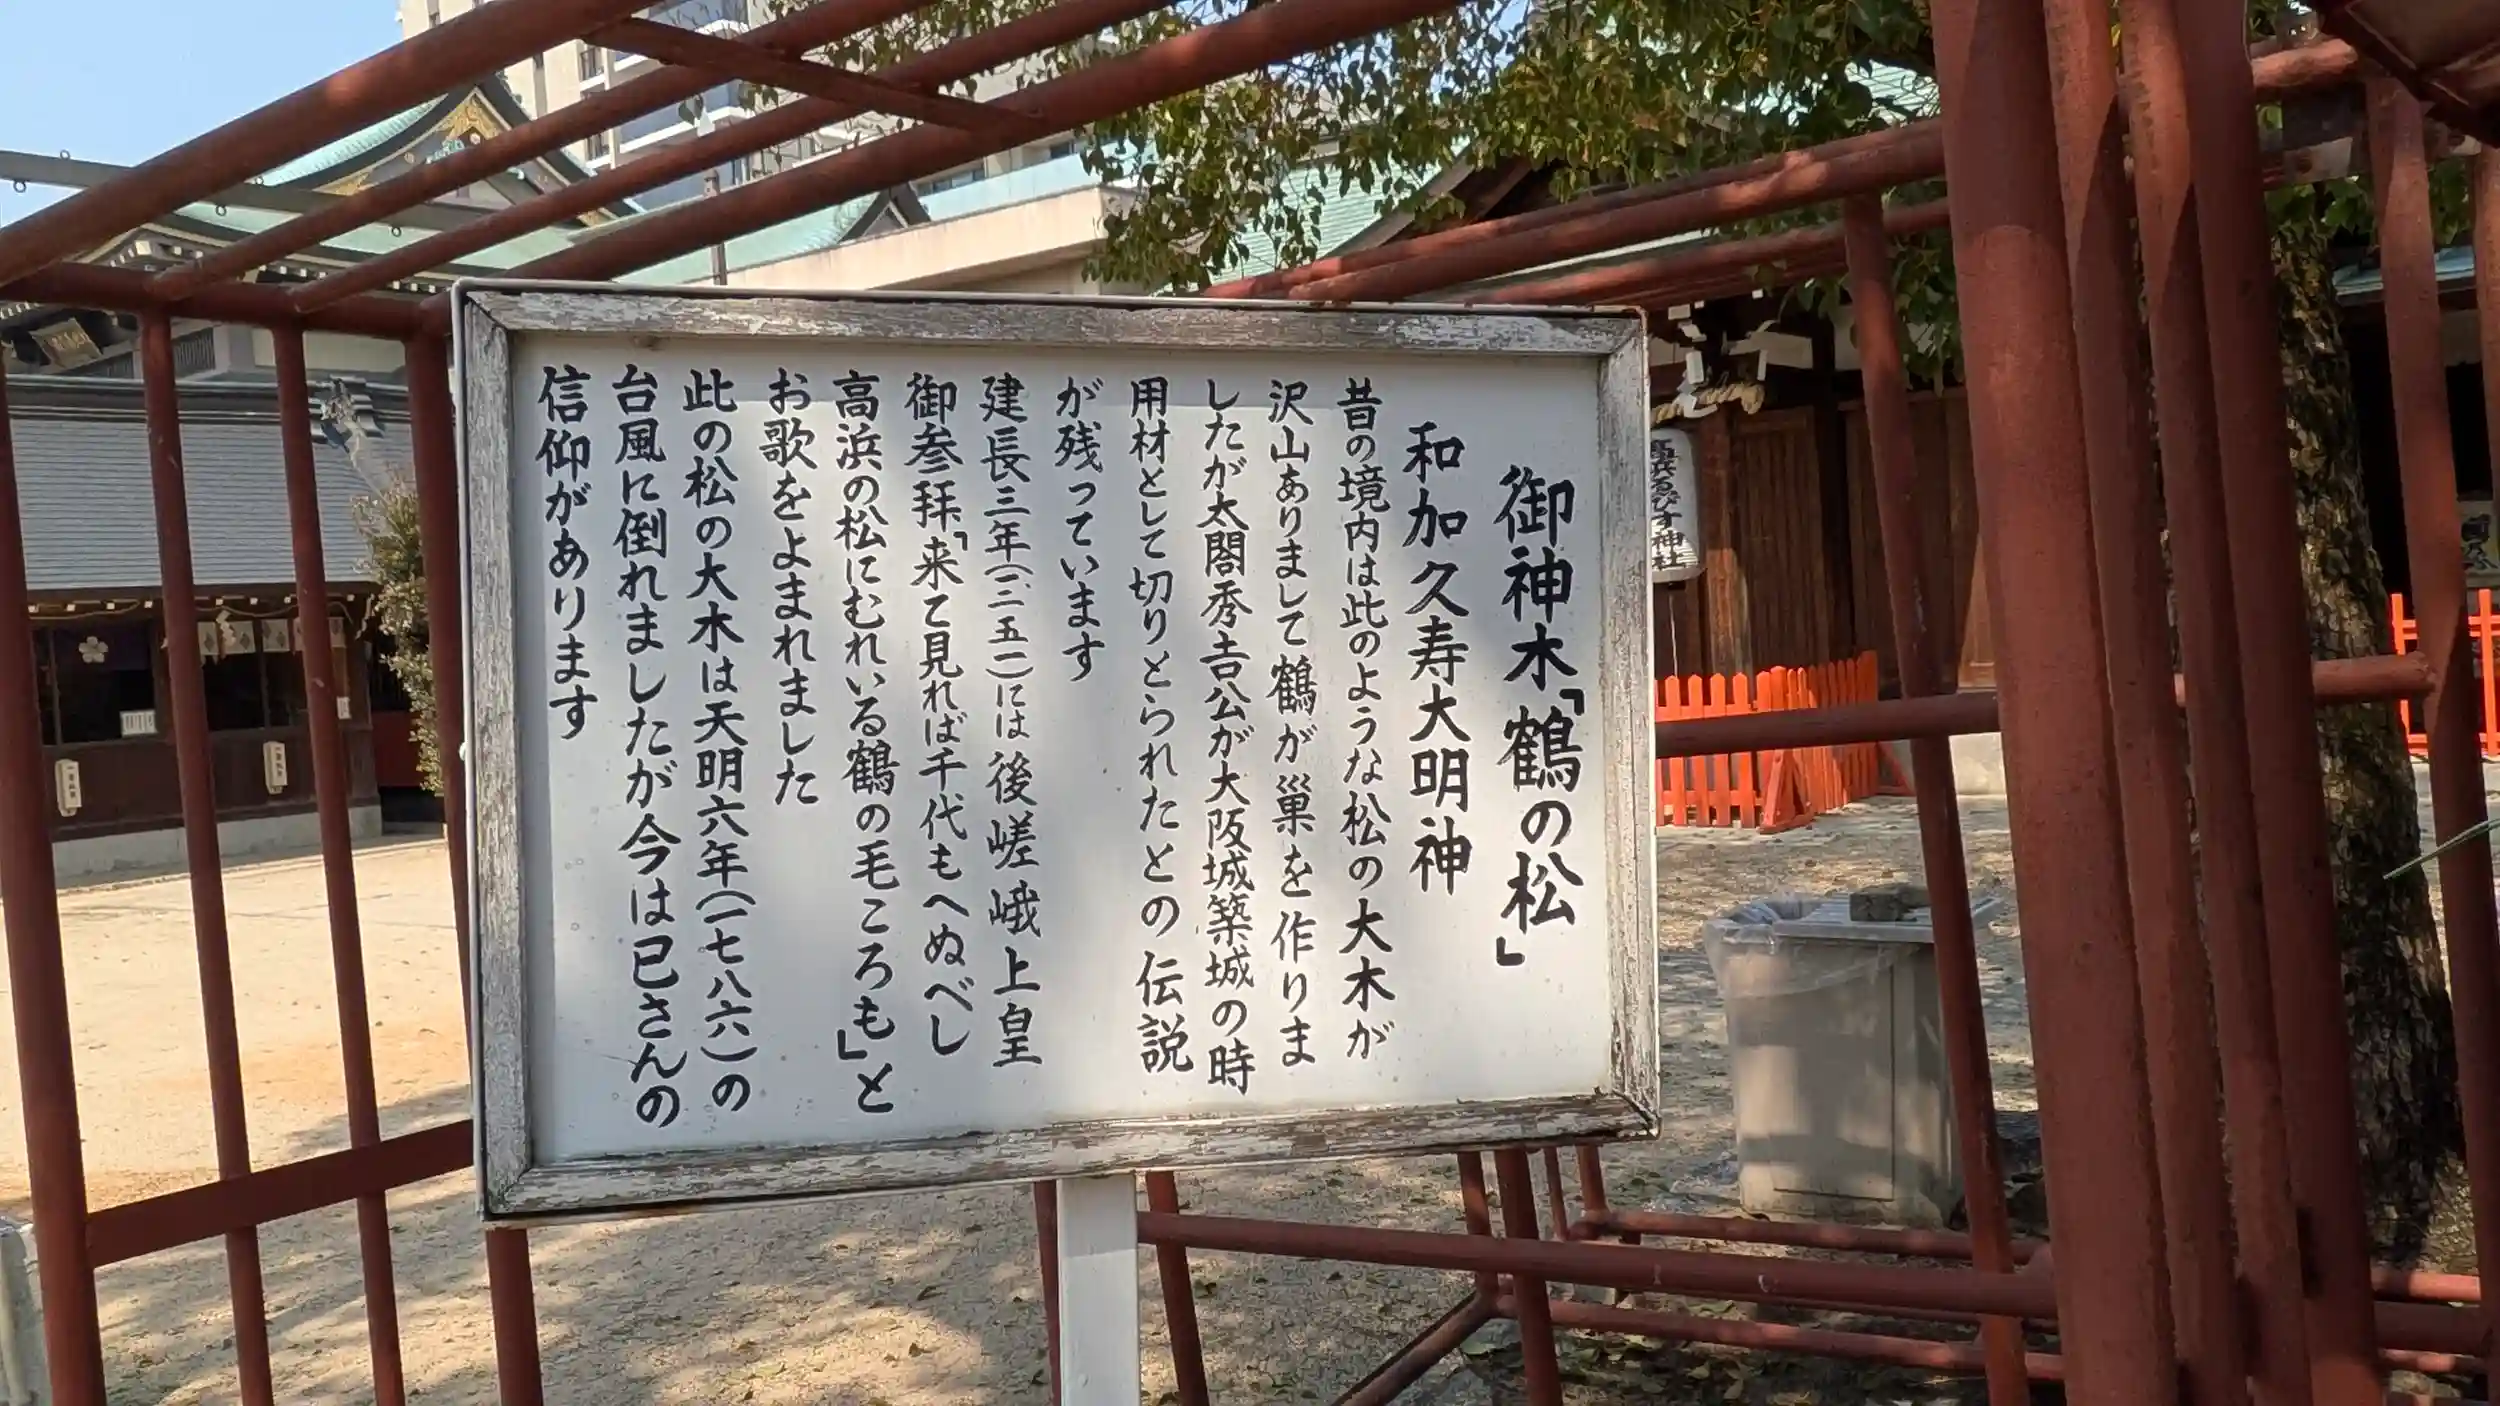 御神木「鶴の松」
和加久寿大明神
昔の境内は此のような松の大木が
沢山ありまして鶴が巣を作りま
したが太閤秀吉公が大阪城築城の時
用材として切りとられたとの伝説
が残っています
建長三年(一二五一)には後嵯峨上皇
御参拝「来て見れば千代もへぬべし
高浜の松にむれいる鶴の毛ころも」と
お歌をよまれました
此の松の大木は天明六年(一七八六)の
台風に倒れましたが今は巳さんの
信仰があります